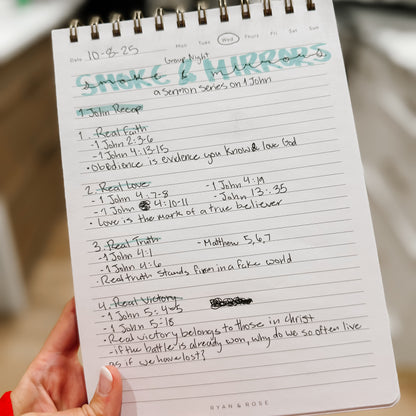 Date 10-8-25 Mon Tues Wed Thurs Fri Sat Sun
Group Night
SMOKE & MIRRORS
smoke & mirrors
a sermon series on 1 John
1 John Recap
1. Real Faith
- 1 John 2:3-6
- 1 John 4:13-15
• Obedience is evidence you know & love God
2. Real Love
- 1 John 4:7-8 - 1 John 4:19
- 1 John 4:10-11 - John 13:35
• Love is the mark of a true believer
3. Real Truth
- 1 John 4:1 - Matthew 5,6,7
- 1 John 4:6
· Real truth stands firm in a fake world
4. Real Victory
- 1 John 5:4-5
- 1 John 5:18
- Real victory belongs to those in Christ
- if the battle is already won, why do we so often live
as if we have lost?
RYAN & ROSE